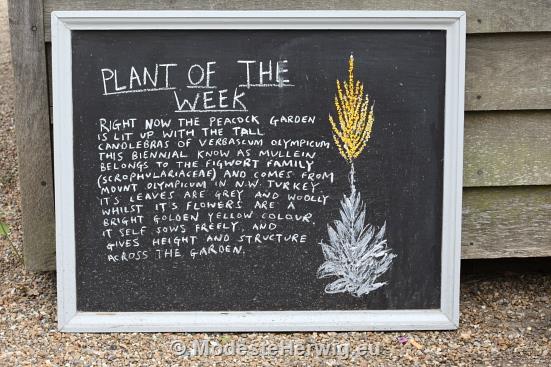 PLANT OF THE
WEEK
RIGHT NOW THE PEACOCK GARDEN
IS LIT UP WITH THE TALL
CANDLEBRAS OF VERBASCUM OLYMPICUM
THIS BIENNIAL KNOW AS MULLEIN
BELONGS TO THE FIGWORT FAMILY
(SCROPHULARIACEAE) AND COMES FROM
MOUNT OLYMPICUM IN N.W. TURKEY.
IT'S LEAVES ARE GREY AND WOOLLY
WHILST IT'S FLOWERS ARE A
BRIGHT GOLDEN YELLOW COLOUR
IT SELF SOWS FREELY, AND
GIVES HEIGHT AND STRUCTURE
ACROSS THE GARDEN.
©ModesteHerwig.eu